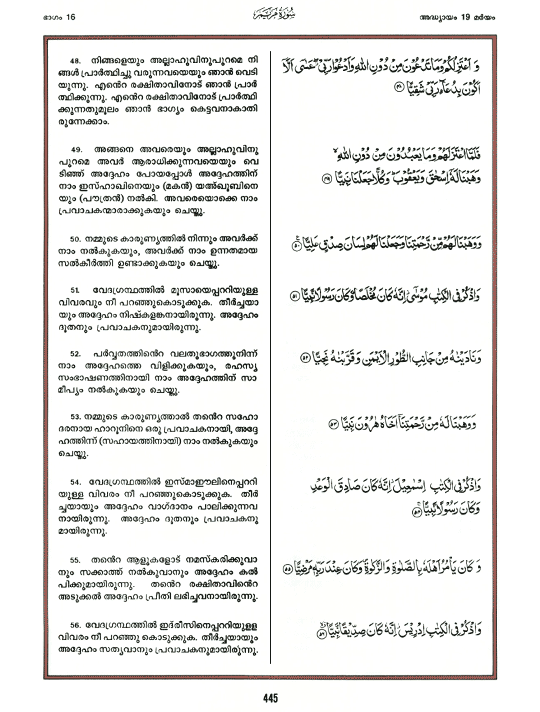 ഭാഗം 16
سُورَة مَرْيَم
അദ്ധ്യായം 19 മർയം
48. നിങ്ങളെയും അല്ലാഹുവിനുപുറമെ നി
ങ്ങൾ പ്രാർത്ഥിച്ചു വരുന്നവയെയും ഞാൻ വെടി
യുന്നു. എൻെറ രക്ഷിതാവിനോട് ഞാൻ പ്രാർ
ത്ഥിക്കുന്നു. എൻെറ രക്ഷിതാവിനോട് പ്രാർത്ഥി
ക്കുന്നതുമൂലം ഞാൻ ഭാഗ്യം കെട്ടവനാകാതി
രുന്നേക്കാം.
49. അങ്ങനെ അവരെയും അല്ലാഹുവിനു
പുറമെ അവർ ആരാധിക്കുന്നവയെയും വെ
ടിഞ്ഞ് അദ്ദേഹം പോയപ്പോൾ അദ്ദേഹത്തിന്
നാം ഇസ്ഹാഖിനെയും (മകൻ) യഅ്ഖൂബിനെ
യും (പൗത്രൻ) നൽകി. അവരെയൊക്കെ നാം
പ്രവാചകന്മാരാക്കുകയും ചെയ്തു.
50. നമ്മുടെ കാരുണ്യത്തിൽ നിന്നും അവർക്ക്
നാം നൽകുകയും, അവർക്ക് നാം ഉന്നതമായ
സൽകീർത്തി ഉണ്ടാക്കുകയും ചെയ്തു.
51. വേദഗ്രന്ഥത്തിൽ മൂസായെപ്പററിയുള്ള
വിവരവും നീ പറഞ്ഞുകൊടുക്കുക. തീർച്ചയാ
യും അദ്ദേഹം നിഷ്കളങ്കനായിരുന്നു. അദ്ദേഹം
ദൂതനും പ്രവാചകനുമായിരുന്നു.
52. പർവ്വതത്തിൻെറ വലതുഭാഗത്തുനിന്ന്
നാം അദ്ദേഹത്തെ വിളിക്കുകയും, രഹസ്യ
സംഭാഷണത്തിനായി നാം അദ്ദേഹത്തിന് സാ
മീപ്യം നൽകുകയും ചെയ്തു.
53. നമ്മുടെ കാരുണ്യത്താൽ തൻെറ സഹോ
ദരനായ ഹാറൂനിനെ ഒരു പ്രവാചകനായി, അദ്ദേ
ഹത്തിന്ന് (സഹായത്തിനായി) നാം നൽകുകയും
ചെയ്തു.
54. വേദഗ്രന്ഥത്തിൽ ഇസ്മാഈലിനെപ്പററി
യുള്ള വിവരം നീ പറഞ്ഞുകൊടുക്കുക. തീർ
ച്ചയായും അദ്ദേഹം വാഗ്ദാനം പാലിക്കുന്നവ
നായിരുന്നു. അദ്ദേഹം ദൂതനും പ്രവാചകനു
മായിരുന്നു.
55. തൻെറ ആളുകളോട് നമസ്കരിക്കുവാ
നും സക്കാത്ത് നൽകുവാനും അദ്ദേഹം കൽ
പിക്കുമായിരുന്നു. തൻെറ രക്ഷിതാവിൻെറ
അടുക്കൽ അദ്ദേഹം പ്രീതി ലഭിച്ചവനായിരുന്നു.
56. വേദഗ്രന്ഥത്തിൽ ഇദ്‌രീസിനെപ്പററിയുള്ള
വിവരം നീ പറഞ്ഞു കൊടുക്കുക. തീർച്ചയായും
അദ്ദേഹം സത്യവാനും പ്രവാചകനുമായിരുന്നു.
وَأَعْتَزِلُكُمْ وَمَا تَدْعُونَ مِن دُونِ اللَّهِ وَأَدْعُوا رَبِّي عَسَىٰ أَلَّا
أَكُونَ بِدُعَاءِ رَبِّي شَقِيًّا ٤٨
فَلَمَّا اعْتَزَلَهُمْ وَمَا يَعْبُدُونَ مِن دُونِ اللَّهِ
وَهَبْنَا لَهُ إِسْحَٰقَ وَيَعْقُوبَ وَكُلًّا جَعَلْنَا نَبِيًّا ٤٩
وَوَهَبْنَا لَهُم مِّن رَّحْمَتِنَا وَجَعَلْنَا لَهُمْ لِسَانَ صِدْقٍ عَلِيًّا ٥٠
وَاذْكُرْ فِي الْكِتَٰبِ مُوسَىٰ إِنَّهُ كَانَ مُخْلَصًا وَكَانَ رَسُولًا نَّبِيًّا ٥١
وَنَادَيْنَٰهُ مِن جَانِبِ الطُّورِ الْأَيْمَنِ وَقَرَّبْنَٰهُ نَجِيًّا ٥٢
وَوَهَبْنَا لَهُ مِن رَّحْمَتِنَا أَخَاهُ هَٰرُونَ نَبِيًّا ٥٣
وَاذْكُرْ فِي الْكِتَٰبِ إِسْمَٰعِيلَ إِنَّهُ كَانَ صَادِقَ الْوَعْدِ
وَكَانَ رَسُولًا نَّبِيًّا ٥٤
وَكَانَ يَأْمُرُ أَهْلَهُ بِالصَّلَوٰةِ وَالزَّكَوٰةِ وَكَانَ عِندَ رَبِّهِ مَرْضِيًّا ٥٥
وَاذْكُرْ فِي الْكِتَٰبِ إِدْرِيسَ إِنَّهُ كَانَ صِدِّيقًا نَّبِيًّا ٥٦
445